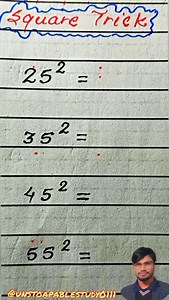 Square Trick
25² =
35² =
45² =
55² =
@UNSTOAPABLESTUDY0111